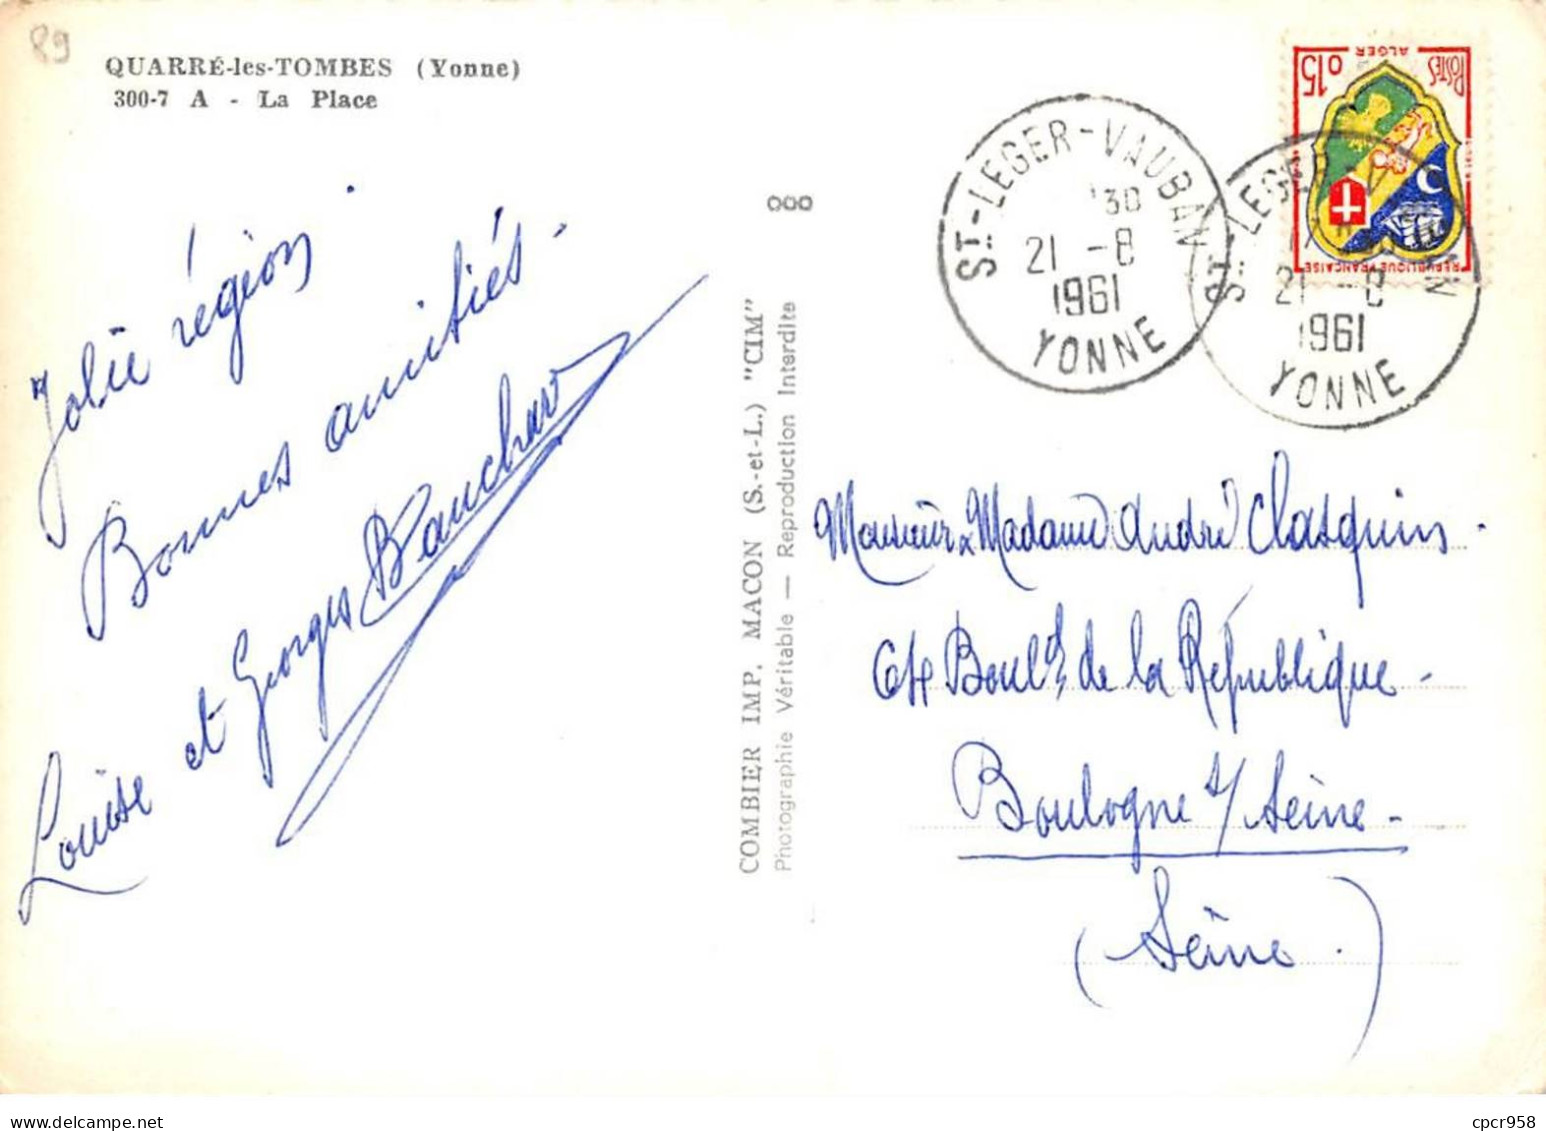 89
QUARRÉ-les-TOMBES (Yonne)
300-7 A - La Place
Jolie région
Bonnes amitiés.
Louise et Georges
COMBIER IMP. MACON (S.-et-L.) "CIM"
Photographie Véritable — Reproduction Interdite
ST-LEGER-VAUBAN
30
21 -8
1961
YONNE
ST-LEGER-VAUBAN
17
21 -8
1961
YONNE
0,15
ALGER
POSTES
REPUBLIQUE FRANÇAISE
Monsieur & Madame André Clasquin
Boul.d de la République -
Boulogne s/ Seine -
(Seine.)
cpcr958